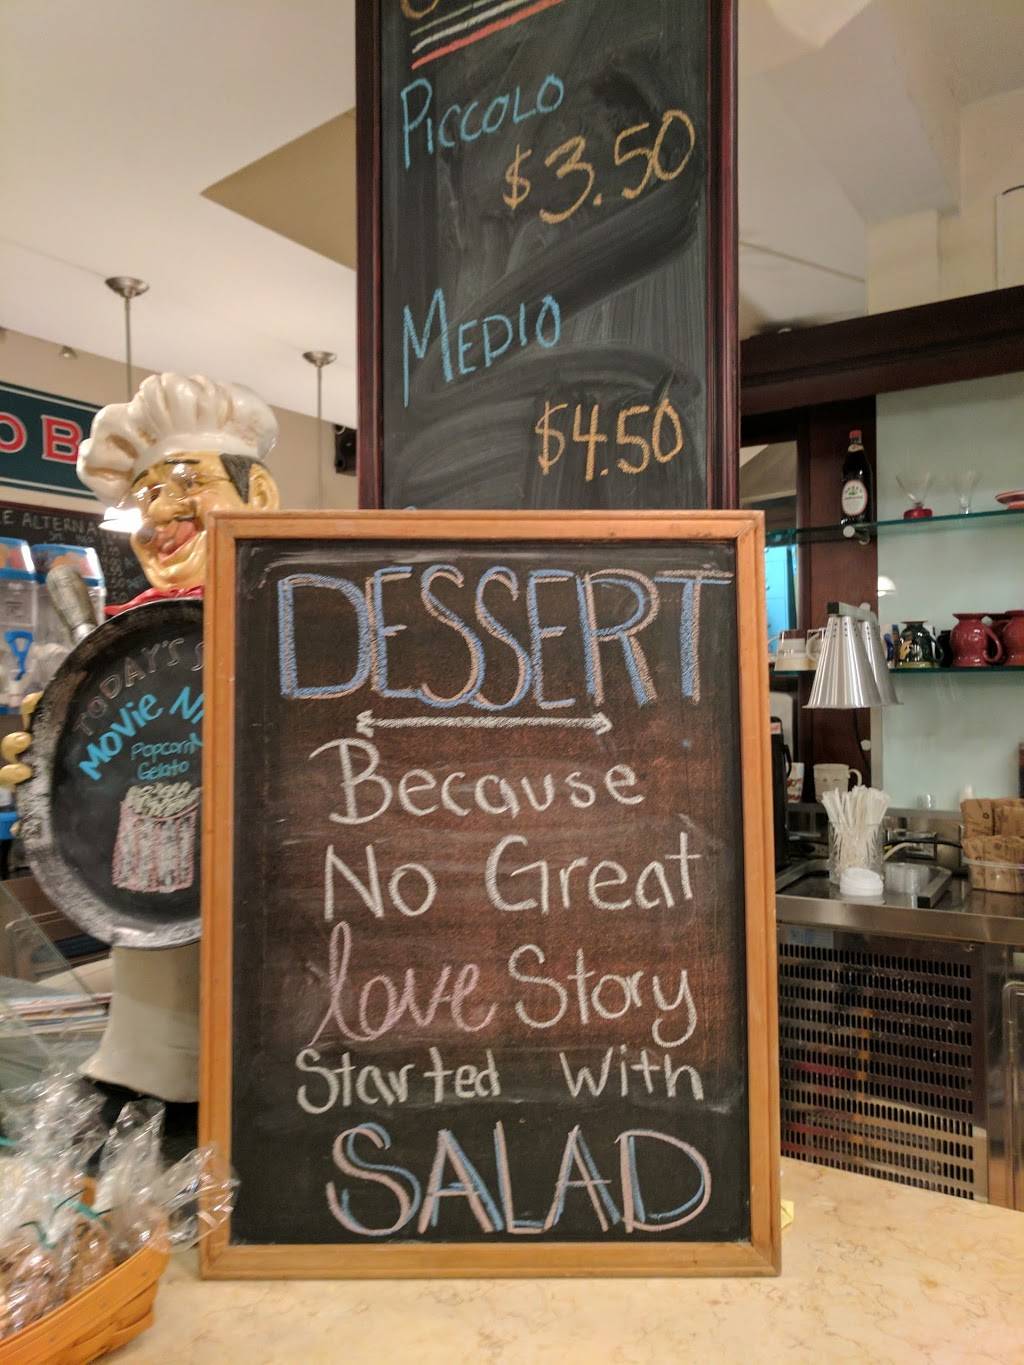 PICCOLO
$3.50
MEDIO
$4.50
O B
E ALTERNA
TODAY'S S
MOVIE NI
Popcorn
Gelato
DESSERT
Because
No Great
love Story
Started With
SALAD